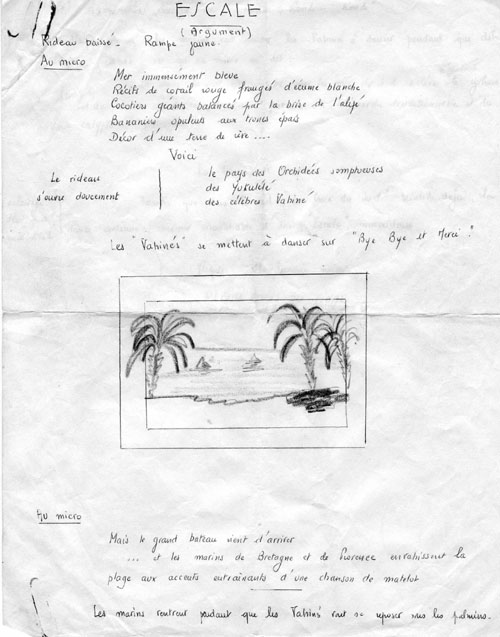 ESCALE
(Argument)
Rideau baissé - Rampe jaune.
Au micro
Mer immensément bleue
Récifs de corail rouge frangés d'écume blanche
Cocotiers géants balancés par la brise de l'alizé
Bananiers opulents aux troncs épais
Décor d'une terre de rêve ....
Voici
Le rideau
s'ouvre doucement
le pays des Orchidées somptueuses
des Yukulélé
des célèbres Vahiné
Les "Vahinés" se mettent à danser sur "Bye Bye et Merci".
Au micro
Mais le grand bateau vient d'arriver
... et les marins de Bretagne et de Provence envahissent la
plage aux accents entrainants d'une chanson de matelot
Les marins rentrent pendant que les Vahinés vont se reposer sous les palmiers.